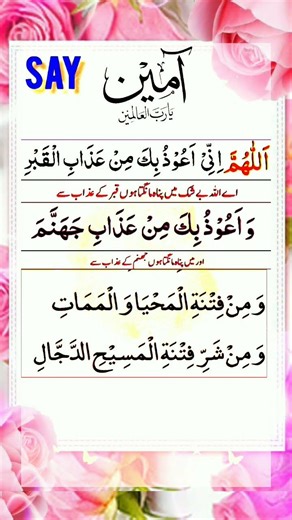 SAY
آمین
یارب العالمین
اَللّٰهُمَّ اِنِّیْ اَعُوْذُ بِكَ مِنْ عَذَابِ الْقَبْرِ
اے اللہ بے شک میں پناہ مانگتا ہوں قبر کے عذاب سے
وَ اَعُوْذُ بِكَ مِنْ عَذَابِ جَهَنَّمَ
اور میں پناہ مانگتا ہوں جھنم کے عذاب سے
وَ مِنْ فِتْنَةِ الْمَحْيَا وَ الْمَمَاتِ
وَ مِنْ شَرِّ فِتْنَةِ الْمَسِيْحِ الدَّجَّالِ